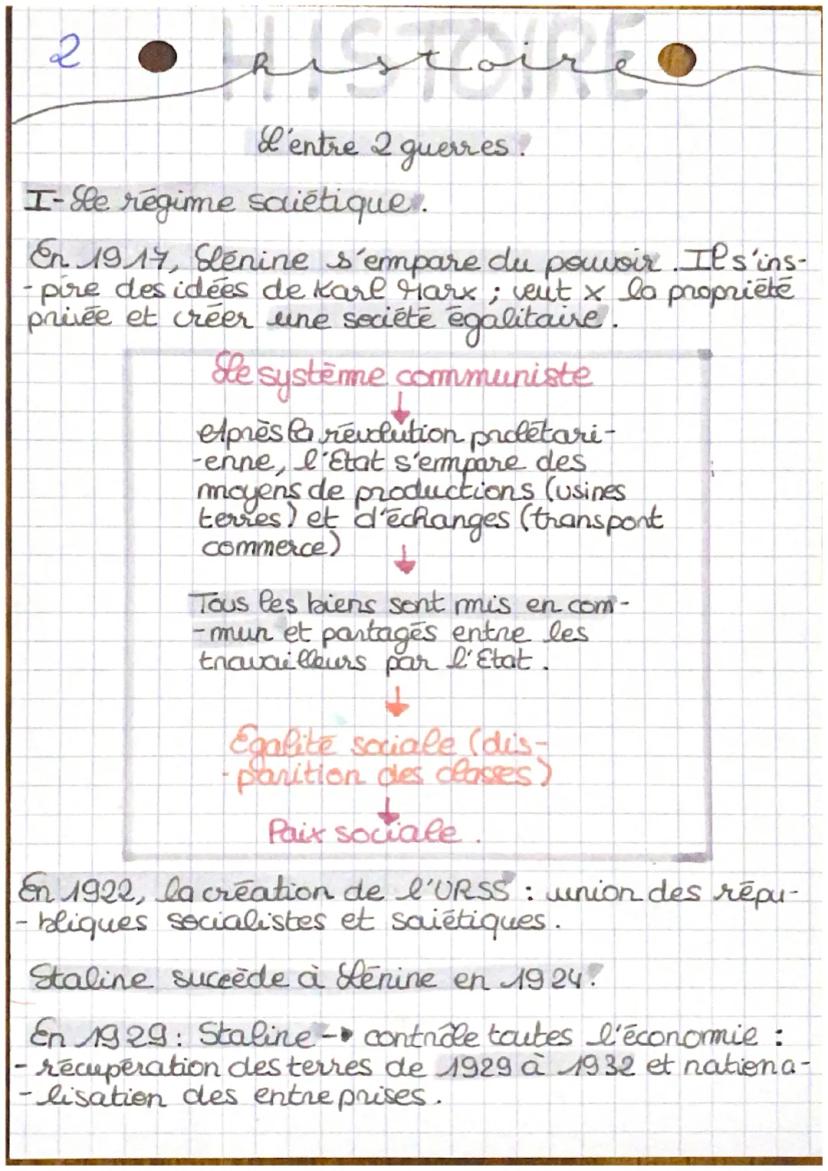 2
HISTOIRE
histoire
L'entre 2 guerres.
I- Le régime soviétique.
En 1917, Lénine s'empare du pouvoir. Il s'ins-
-pire des idées de Karl Marx ; veut x la propriété
privée et créer une société égalitaire.
Le système communiste
↓
Après la révolution prolétari-
-enne, l'Etat s'empare des
moyens de productions (usines
terres) et d'échanges (transport
commerce)
↓
Tous les biens sont mis en com-
-mun et partagés entre les
travailleurs par l'Etat.
↓
Egalité sociale (dis-
-parition des classes)
↓
Paix sociale.
En 1922, la création de l'URSS : union des répu-
-bliques socialistes et soviétiques.
Staline succède à Lénine en 1924.
En 1929 : Staline → contrôle toutes l'économie :
- récupération des terres de 1929 à 1932 et nationa-
-lisation des entreprises.